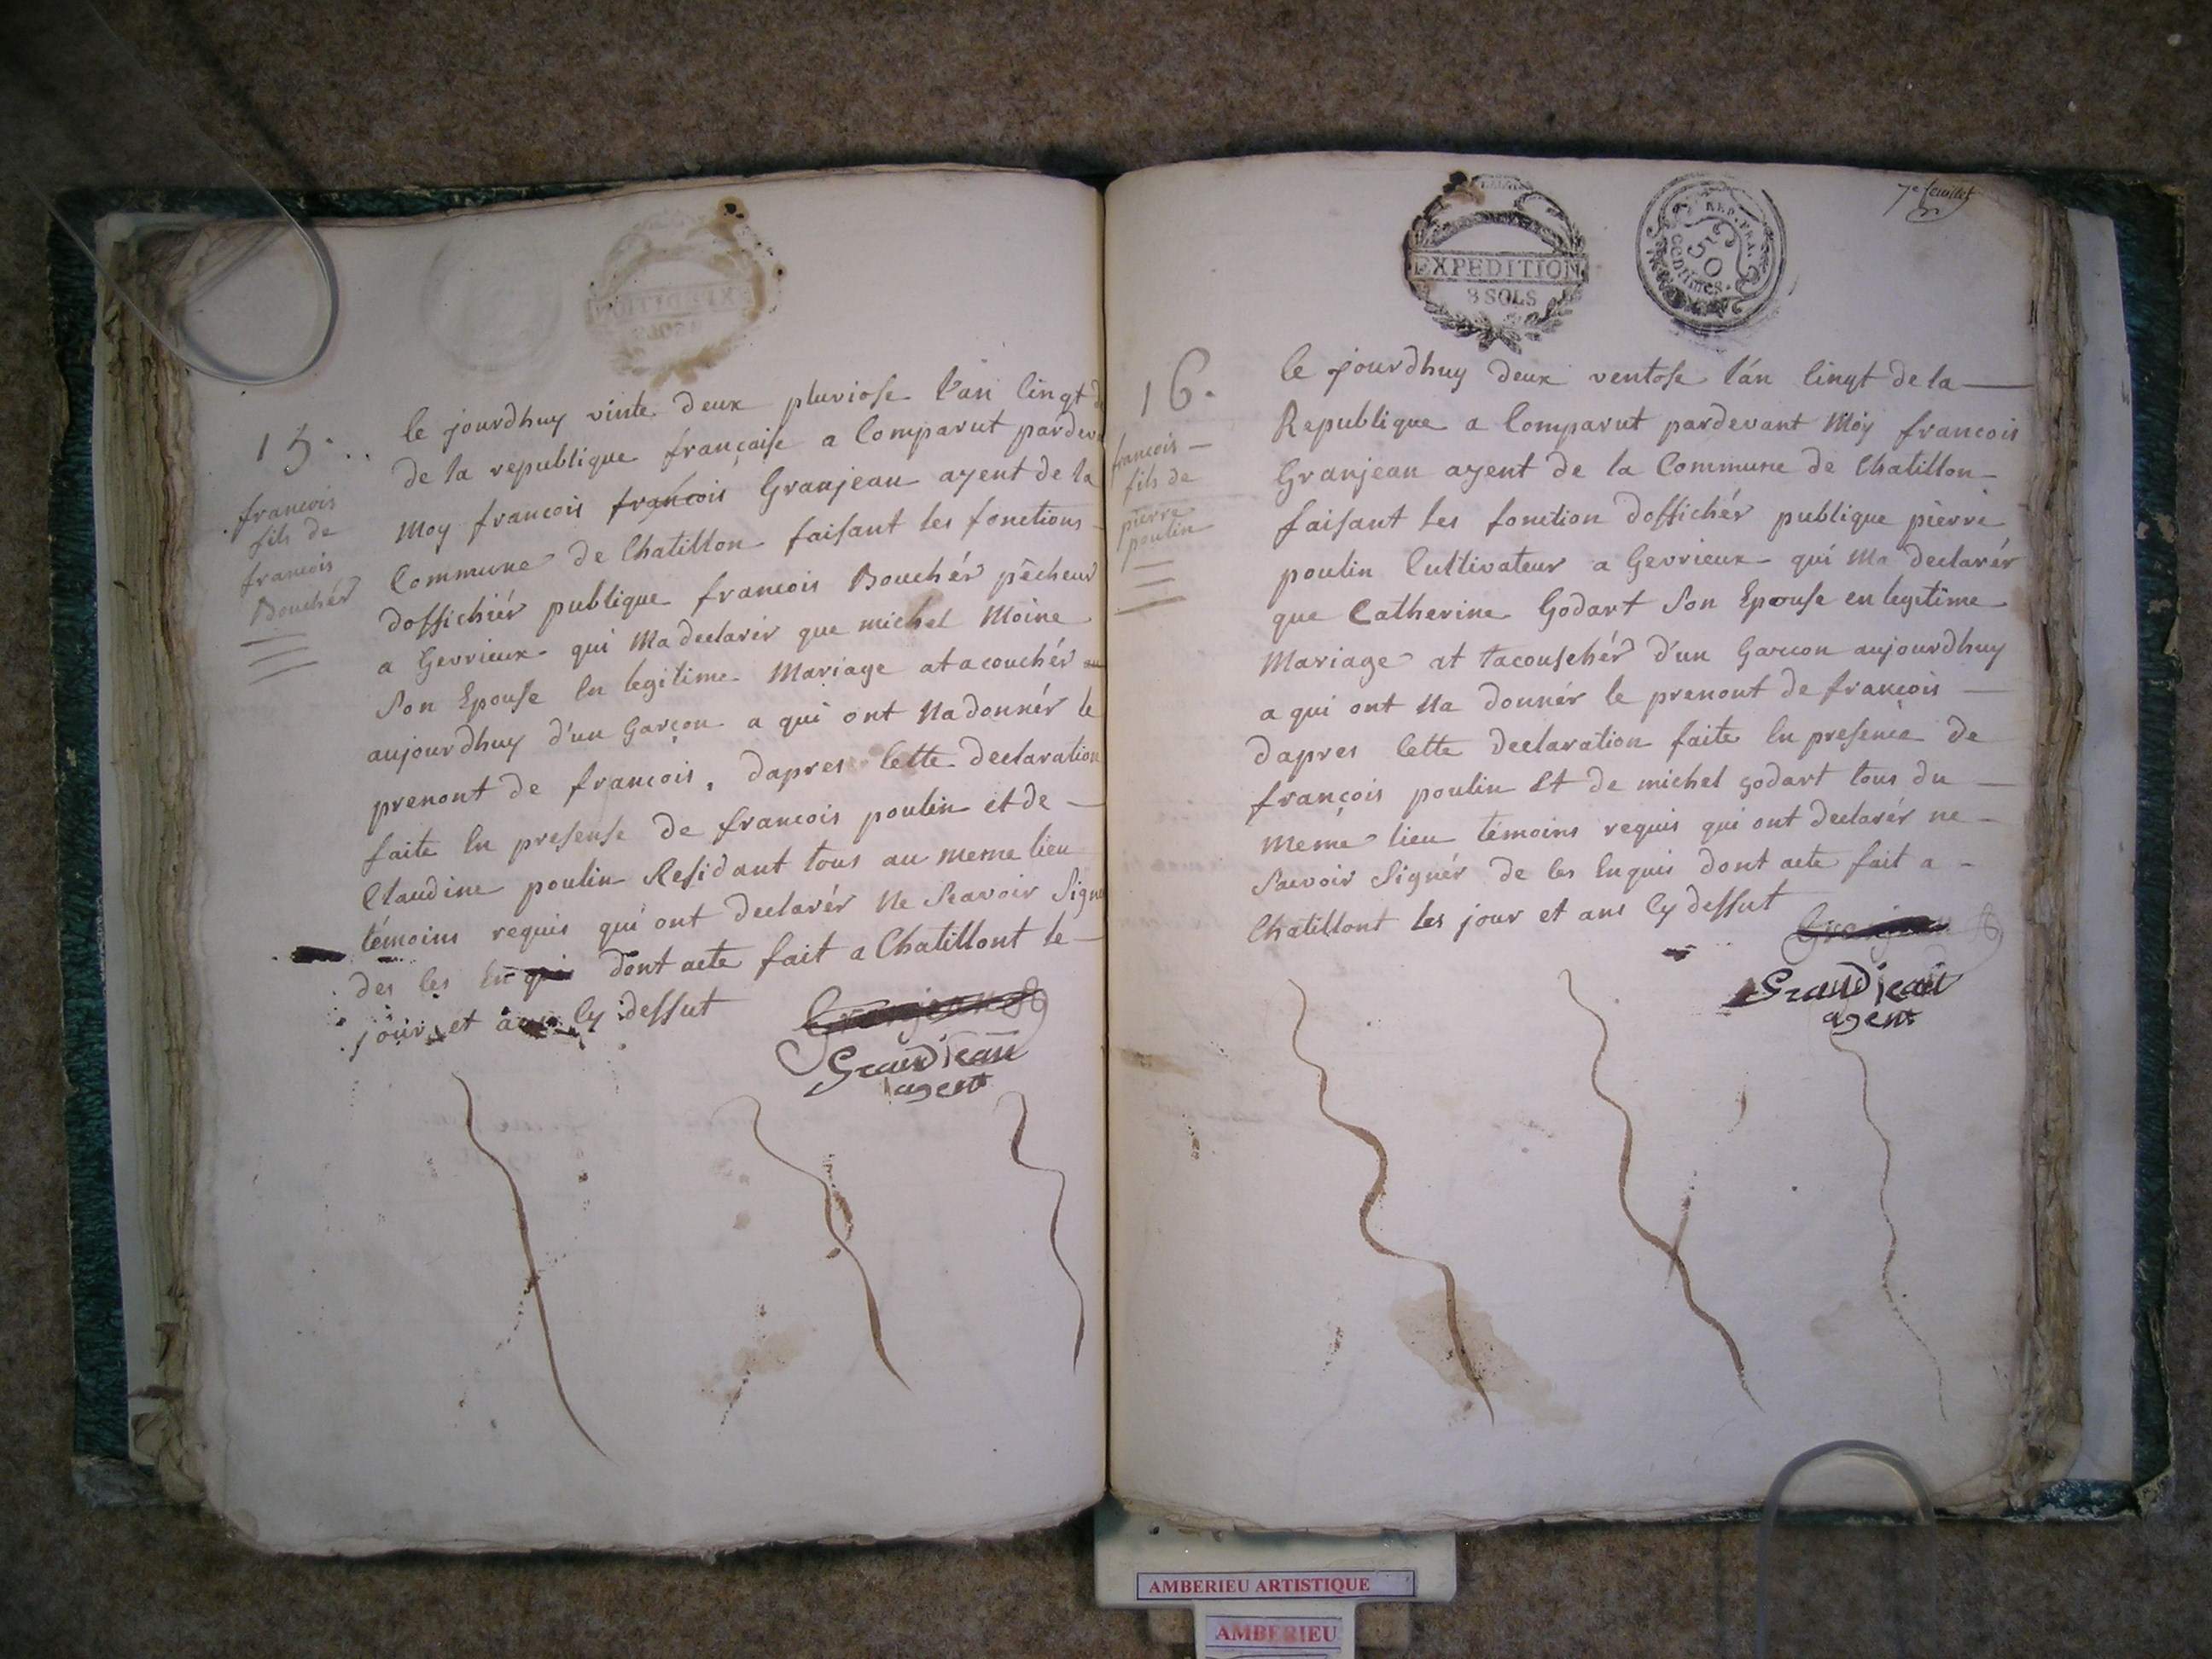 15.
francois
fils de
francois
Bouchér
le jourdhuy vinte deux pluviose l'an Cinqt
de la republique française a Comparut pardev
Moy francois francois Granjean agent de la
Commune de Chatillon faisant les fonctions
doffichiér publique francois Bouchér pêcheur
a Gevrieux qui Ma declarér que michel Moine
Son Epouse En legitime Mariage at acouchér
aujourdhuy d'un Garçon a qui ont Na donnér le
prenont de francois, dapres Cette declaration
faite En presense de francois poulin et de
Claudine poulin Residant tous au meme lieu
témoins requis qui ont declarér Ne Scavoir Signe
des ces dont acte fait a Chatillont le
jour et Cy dessut
Granjean
Grandjean
agent
7e feuillet
EXPEDITION
8 SOLS
REP. FRA.
50
centimes.
16.
francois
fils de
pierre
poulin
le jourdhuy deux ventose l'an Cinqt de la
Republique a Comparut pardevant Moy francois
Granjean agent de la Commune de Chatillon
faisant les fonction doffichér publique pierre
poulin Cultivateur a Gevrieux qui Ma declarér
que Catherine Godart Son Epouse en legetime
Mariage at tacouschér d'un Garcon aujourdhuy
a qui ont Na donnér le prenont de francois
dapres Cette declaration faite En presence de
françois poulin Et de michel godart tous du
meme lieu témoins requis qui ont declarér ne
Scavoir Signér de ces Enquis dont acte fait a
Chatillont les jour et ans Cy dessut
Granjean
Grandjean
agent
AMBERIEU ARTISTIQUE
AMBERIEU